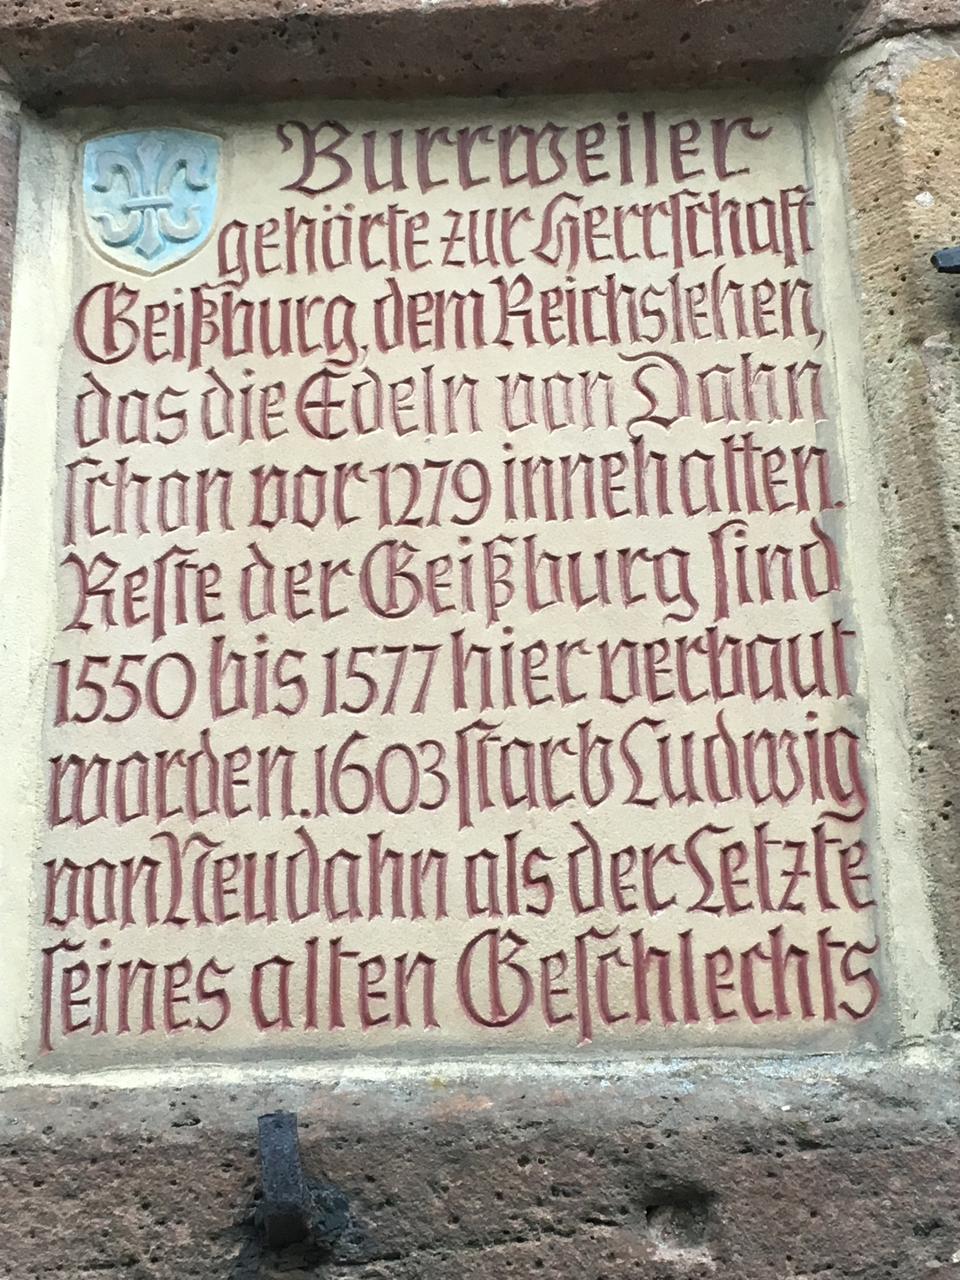 Burrweiler
gehörte zur Herrschaft
Geißburg, dem Reichslehen,
das die Edeln von Dahn
schon vor 1279 innehatten.
Reste der Geißburg sind
1550 bis 1577 hier verbaut
worden. 1603 starb Ludwig
von Neudahn als der Letzte
seines alten Geschlechts